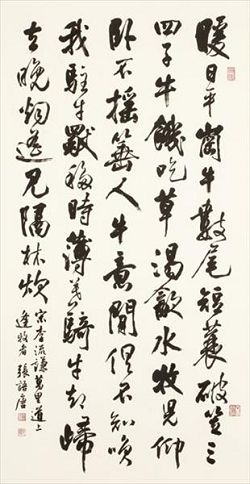 暖日平岡牛數尾短蓑破笠三
四子牛饑吃草渴飲水牧兒仰
卧不搖箠人牛意閒俱不知喚
我駐牛移時薄暮騎牛却歸
去晚烟遙見隔林炊
宋李流謙萬里道上
逢牧者 張語唐